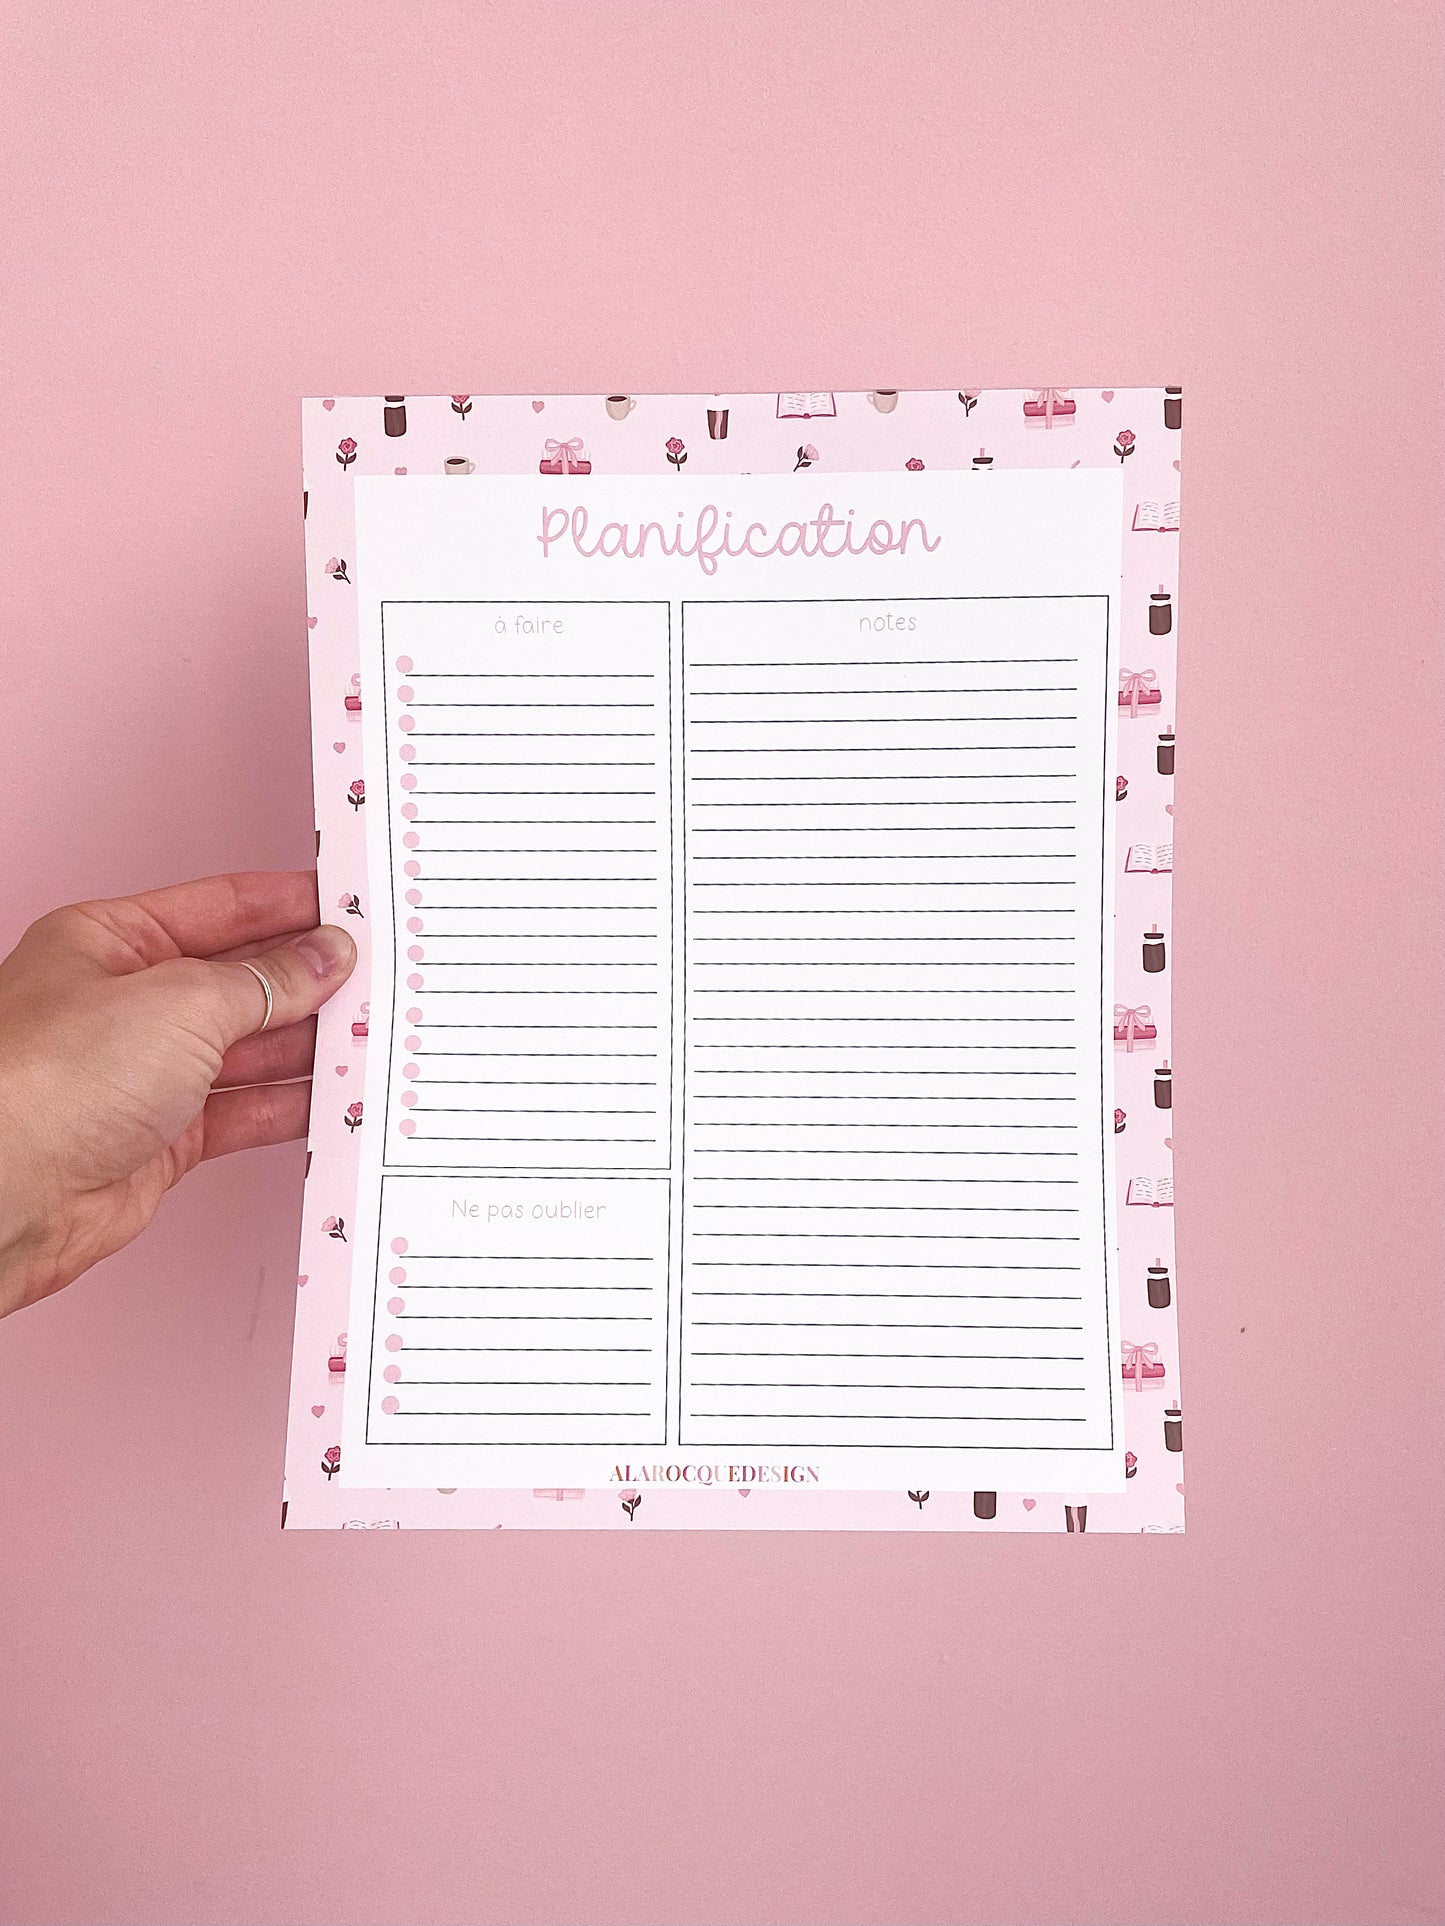 Planification
à faire
notes
Ne pas oublier
ALAROCQUEDESIGN